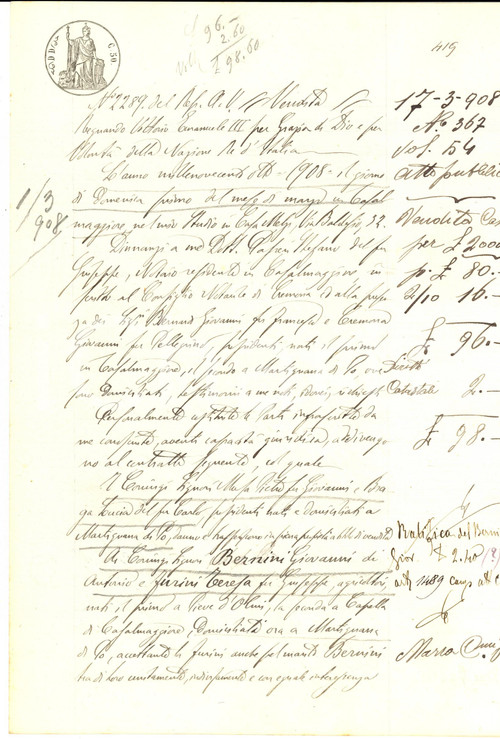 96.-
2.60
£ 98.60
419
C. 50
N° 2289. del Rep. A. V. Vendita
Regnando Vittorio Emanuele III per Grazia di Dio e per
Volontà della Nazione Re d'Italia
L'anno millenovecento otto - 1908 - il giorno
di Domenica primo del mese di marzo in Casal
maggiore, nel mio Studio in Casa Via Baldesio, 32.
Dinnanzi a me Dott. Stefano del fu
Giuseppe, Notaio residente in Casalmaggiore, in
presso al Consiglio Notarile di Cremona ed alla presen
za dei Sig.ri Bernardi Giovanni fu Francesco e
Giovanni fu Pellegrino, possidenti, nati il primo
in Casalmaggiore, il secondo a Martignana di Po, ove
sono domiciliati, testimonii a me noti, idonei, richiesti
Personalmente costituite le Parti infrascritte da
me conosciute, aventi capacità giuridica, addivengo
no al contratto seguente, col quale
I Coniugi Signori Pietro fu Giovanni e
Lucia del fu Carlo, possidenti nati e domiciliati a
Martignana di Po,
Ai Coniugi Signori Bernini Giovanni di
Antonio e Furini Teresa fu Giuseppe agricoltori,
nati il primo a Pieve d'Olmi, la seconda a Cappella
di Casalmaggiore, domiciliati ora a Martignana
di Po, accettante la Furini anche pel marito Bernini
tra di loro unitamente, indivisamente e con eguale interessenza
1/3
908
17-3-908
N° 367
Vol. 54
atto pubblic
Vendita Ca
per £ 2000
p. £ 80.-
2/10 16.-
£ 96.-
Diritti
Catastale 2.-
£ 98.-
Ratifica del Berni
Giov. £ 2.40
al N 1489